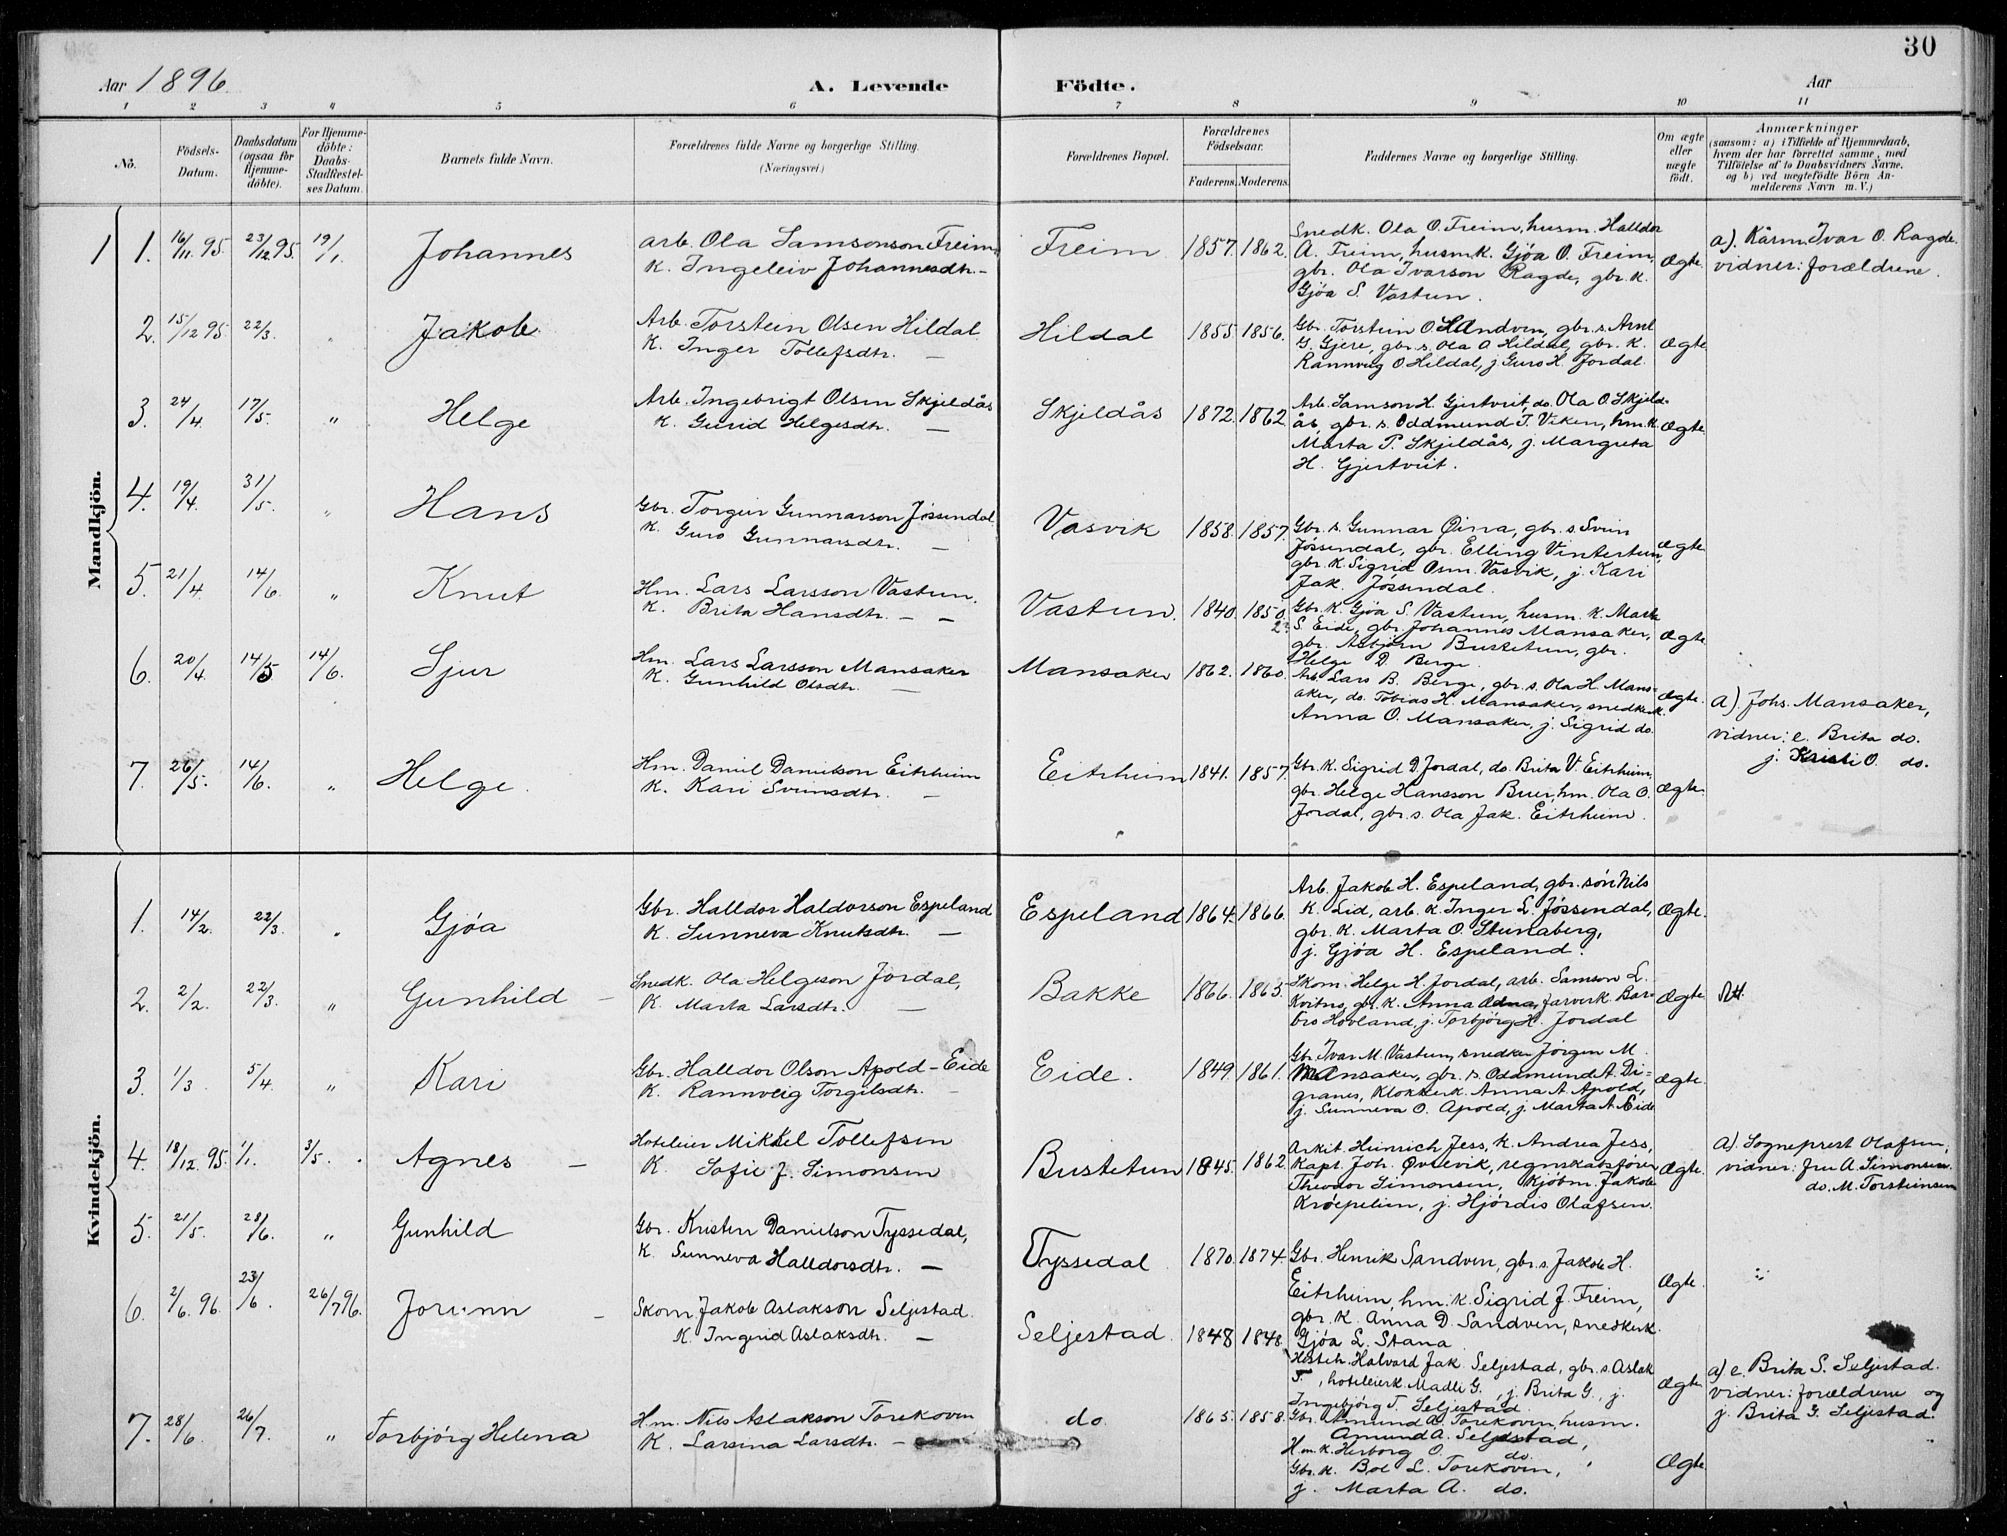 30
Aar 1896. A. Levende Födte. Aar
1 2 3 4 5 6 7 8 9 10 11
No. Födsels-Datum. Daabsdatum (ogsaa for Hjemme-döbte). For Hjemme-döbte: Daabs-Stadfæstel-ses Datum. Barnets fulde Navn. Forældrenes fulde Navne og borgerlige Stilling. (Næringsvei) Forældrenes Bopæl. Forældrenes Födselsaar. Faderens. Moderens. Faddernes Navne og borgerlige Stilling. Om ægte eller uægte födt. Anmærkninger (saasom: a) i Tilfælde af Hjemmedaab, hvem der har forrettet samme, med Tilföielse af to Daabsvidners Navne. og b) ved uægtefödte Börn An-melderens Navn m. V.)
Mandkjön.
1 1. 16/11 95. 23/12 95. 19/1. Johannes
arb. Ola Samsonson Freim
K. Ingeleiv Johannesdtr. –
Freim 1857. 1862.
Snedk. Ola O. Freim, husm. Halldor
A. Freim, husmk. Gjøa O. Freim,
gbr. Ola Ivarson Ragde, gbr. K.
Gjøa S. Vastun.
Ægte.
a). Kårm. Ivar O. Ragde.
vidner: forældrene.
2. 15/12 95. 22/3. „ Jakob
Arb. Torstein Olsen Hildal
K. Inger Tollefsdtr. –
Hildal 1855. 1856.
Gbr. Torstein O. Sandven, gbr. s. Arne
G. Gjere, gbr. s. Ola A Hildal, gbr. K.
Rannveig O Hildal, j Guro H. Jordal.
Ægte
3. 24/4. 17/5. „ Helge
Arb. Ingebrigt Olsen Skjeldås
K. Gurid Helgesdtr. –
Skjeldås 1872. 1862.
Arb. Samson H. Gjertveit, do. Ola O. Skjeld-
ås, gbr. s. Oddmund T. Viken, hm. K.
Marta P. Skjeldås, j. Margreta
H. Gjertveit.
Ægte.
4. 19/4. 31/5. „ Hans
Gbr. Torgeir Gunnarson Jøsendal.
K. Guro Gunnarsdtr. –
Vasvik 1858. 1857.
Gbr. s. Gunnar Øina, gbr. s Svein
Jøsendal, gbr. Elling Vintertun,
gbr. K. Sigrid Osm. Vasvik, j. Kari
Jak. Jøsendal.
Ægte
5. 21/4. 14/6. „ Knut
Hm. Lars Larsson Vastun.
K. Brita Hansdtr. – –
Vastun. 1840. 1850.
Gbr. K. Gjøa S. Vastun, husm. K. Marta
S. Eide, gbr. Johannes Mansaker,
gbr. Asbjørn Bustetun, gbr.
Helge D. Berge.
Ægte
6. 20/4. 14/5 14/6. Sjur
Hm. Lars Larsson Mansaker
K. Gunhild Olsdtr. –
Mansaker 1862. 1860.
Arb. Lars B. Berge, gbr. s. Ola H. Mans-
aker, do. Tobias H. Mansaker, snedkerk.
Anna O. Mansaker, j. Sigrid do.
Ægte.
a). Johs. Mansaker,
vidner: e. Brita do.
j. Kristi O. do.
7. 26/5. 14/6. „ Helge.
Hm. Daniel Danielson Eitrheim
K. Kari Sveinsdtr. –
Eitrheim 1841. 1857.
Gbr. K. Sigrid D. Jordal, do. Brita V. Eitrheim,
gbr. Helge Hansson Buer, hm. Ola O.
Jordal, gbr. s. Ola Jak. Eitrheim.
Ægte.
Kvindekjön.
1. 14/2. 22/3. „ Gjøa
Gbr. Halldor Haldorson Espeland
K. Sunneva Knutsdtr. –
Espeland 1864. 1866.
Arb. Jakob H. Espeland, gbr. søn Nils
K. Lid, arb. K. Inger L. Jøsendal,
gbr. K. Marta O. Stunaberg,
j. Gjøa H. Espeland.
Ægte.
2. 2/2. 22/3. „ Gunhild –
Snedk. Ola Helgeson Jordal,
K. Marta Larsdtr. –
Bakke 1866. 1863.
Skom. Helge H. Jordal, arb. Samson L.
Kvitno, gbr. K. Anna Odna, farverk. Bar-
bro Hovland, j. Torbjørg H. Jordal
Ægte.
3. 1/3. 5/4. „ Kari
Gbr. Halldor Olson Apold-Eide
K. Rannveig Torgilsdtr. –
Eide. 1849. 1861.
Gbr. Ivar M. Vastun, snedker Jørgen M.
Mansaker, gbr. s. Oddmund A. Di-
granes, Klokkerk. Anna A Apold,
j. Sunneva O. Apold, j. Marta A Eide
Ægte.
4. 18/12 95. 1/1. 3/5. Agnes –
Hoteleier Mikkel Tollefsen
K. Sofie J. Simonsen
Bustetun 1845. 1862
Arkit. Heinrich Jess, K. Andrea Jess,
Kapt. Joh. Øvrevik, regnskabsfører
Theodor Simonsen, Kjøbm. Jakob
Krøepelien, j. Hjørdis Olafsen.
Ægte.
a). Sogneprest Olafsen,
vidner: fru A. Simonsen
do. M. Torsteinsen
5. 21/5. 28/6. „ Gunhild
Gbr. Kristen Danielson Tyssedal,
K. Sunneva Halldorsdtr. –
Tyssedal 1870. 1874.
Gbr. Henrik Sandven, gbr. s. Jakob H.
Eitrheim, hm. K. Sigrid J. Freim,
gbr. K. Anna D. Sandven, snedkerk.
Gjøa L. Stana.
Ægte.
6. 2/6. 96. 23/6. 26/7 96. Jorunn –
Skom. Jakob Aslakson Seljestad.
K. Ingerid Aslaksdtr. –
Seljestad. 1848 1848.
Halvard Jak. Seljestad, gbr. s. Aslak
T. , hoteleierk Madli G. , j. Brita G., j.
Ingebjørg T. Seljestad.
Ægte
a) e. Brita S. Seljestad.
vidner: forældrene og
j. Brita G. Seljestad.
7. 28/6. 26/7. „ Torbjörg Helena
Hm. Nils Aslakson Torekoven
K. Larsina Larsdtr. –
do. 1865. 1858.
Gbr. Amund A. Torekoven, husm.
Amund A. Seljestad,
Hm. K. Herborg O. do.
Gbr. K. Bol L. Torekoven,
j. Marta A. do.
Ægte